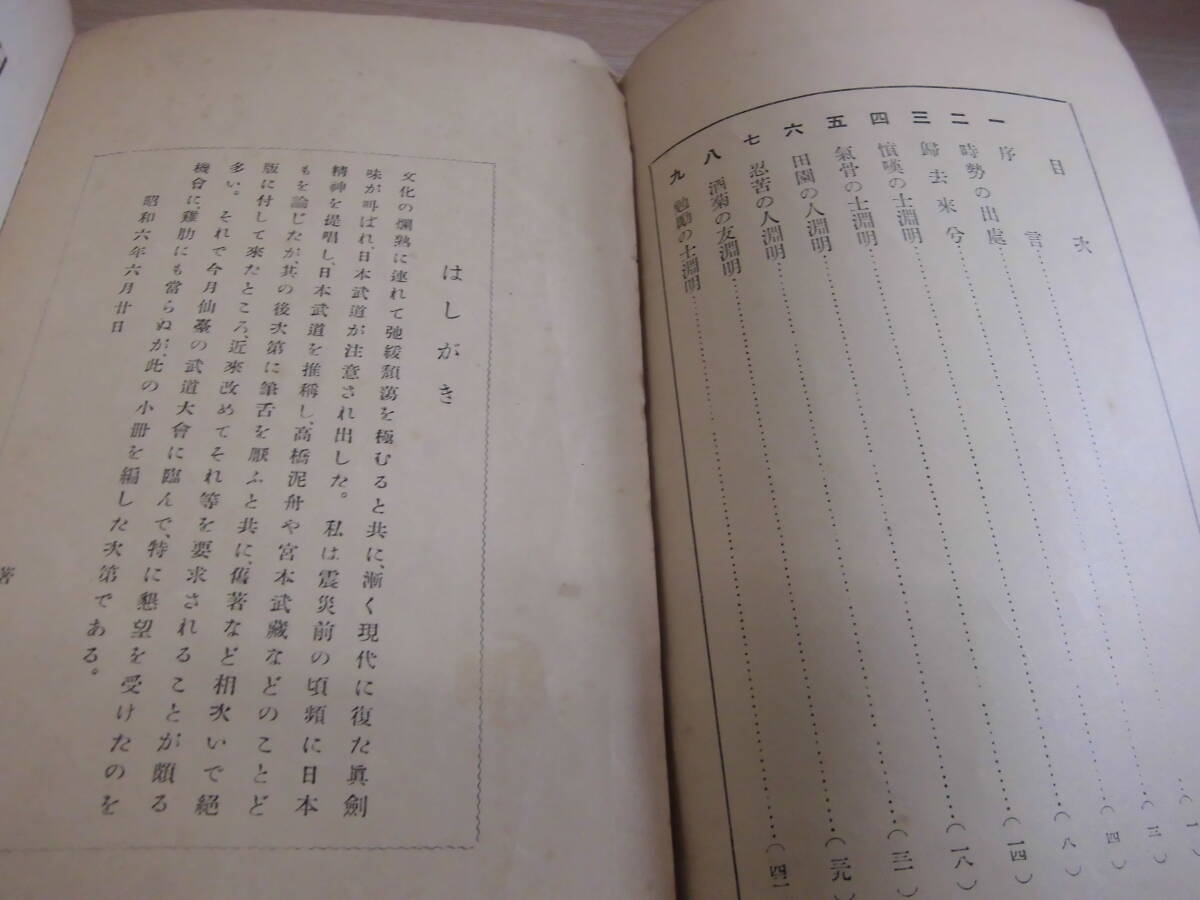 目次
一 序言
二 時勢の出處
三 歸去來兮
四 憤嘆の士淵明
五 氣骨の士淵明
六 田園の人淵明
七 忍苦の人淵明
八 酒菊の友淵明
九 勉勵の士淵明
(三)
(四)
(八)
(一四)
(一八)
(三一)
はしがき
文化の爛熟に連れて弛緩頽蕩を極むると共に、漸く現代に復た眞劍
味が叫ばれ、日本武道が注意され出した。私は震災前の頃頻に日本
精神を提唱し、日本武道を推稱し、高橋泥舟や宮本武藏などのことど
もを論じたが其の後次第に筆舌を厭ふと共に、舊著など相次いで絕
版に付して來たところ、近來改めてそれ等を要求されることが頗る
多い。それで今月仙臺の武道大會に臨んで、特に懇望を受けたのを
機會に雞肋にも當らぬが、此の小冊を編した次第である。
昭和六年六月廿日
著